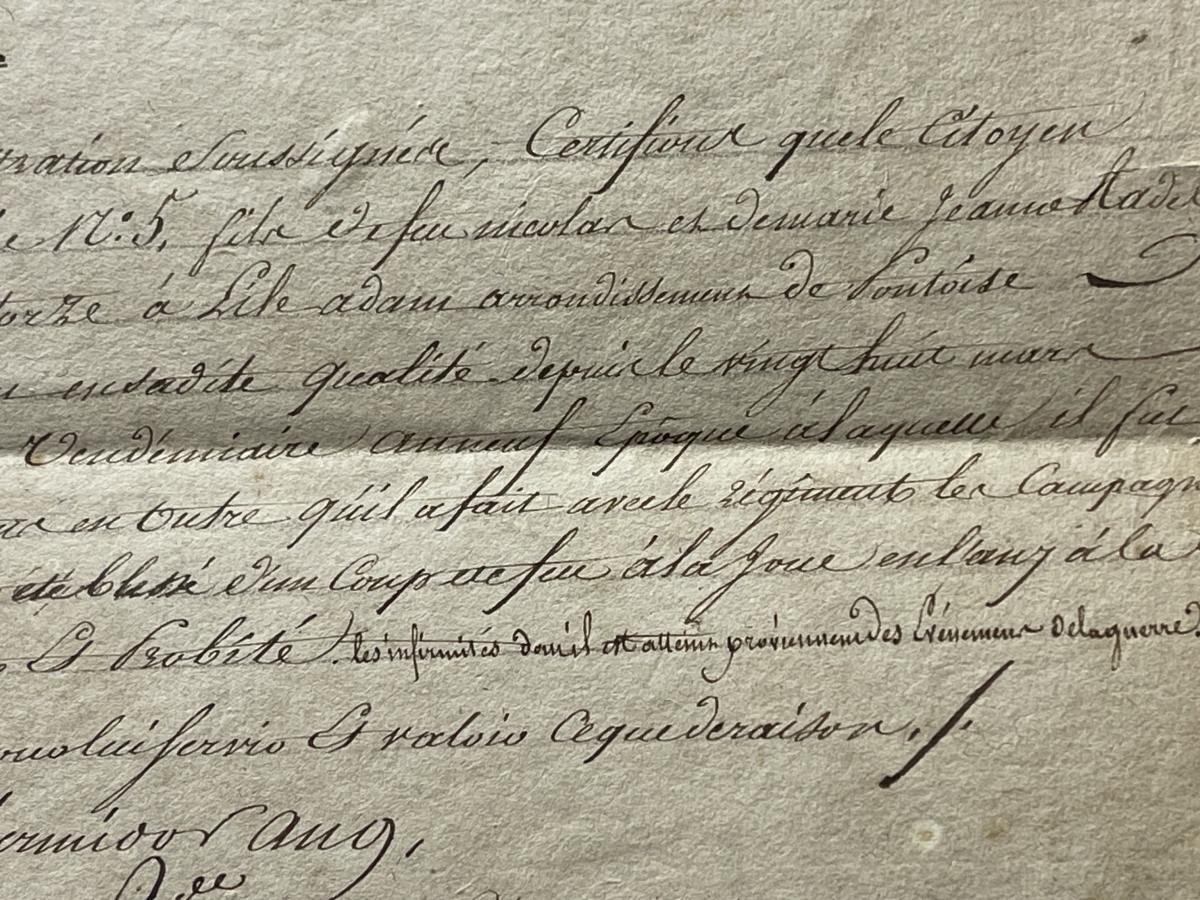 tration Soussignés, Certifions que le Citoyen
N.º 5. fils de feu nicolas et de marie Jeanne Madel
torze à Lile adam arrondissement de Pontoise
en sadite qualité depuis le vingt huit mars
Vendémiaire an neuf Epoque à laquelle il fut
en Outre qu'il a fait avec le régiment les Campagn
été blessé d'un Coup de feu à la Joue en l'an 7 à la
Et Probité. les infirmités dont il est atteint proviennent des Evénemens de la guerre
lui servir Et valoir Ce que de raison ./.
ermidor an 9,